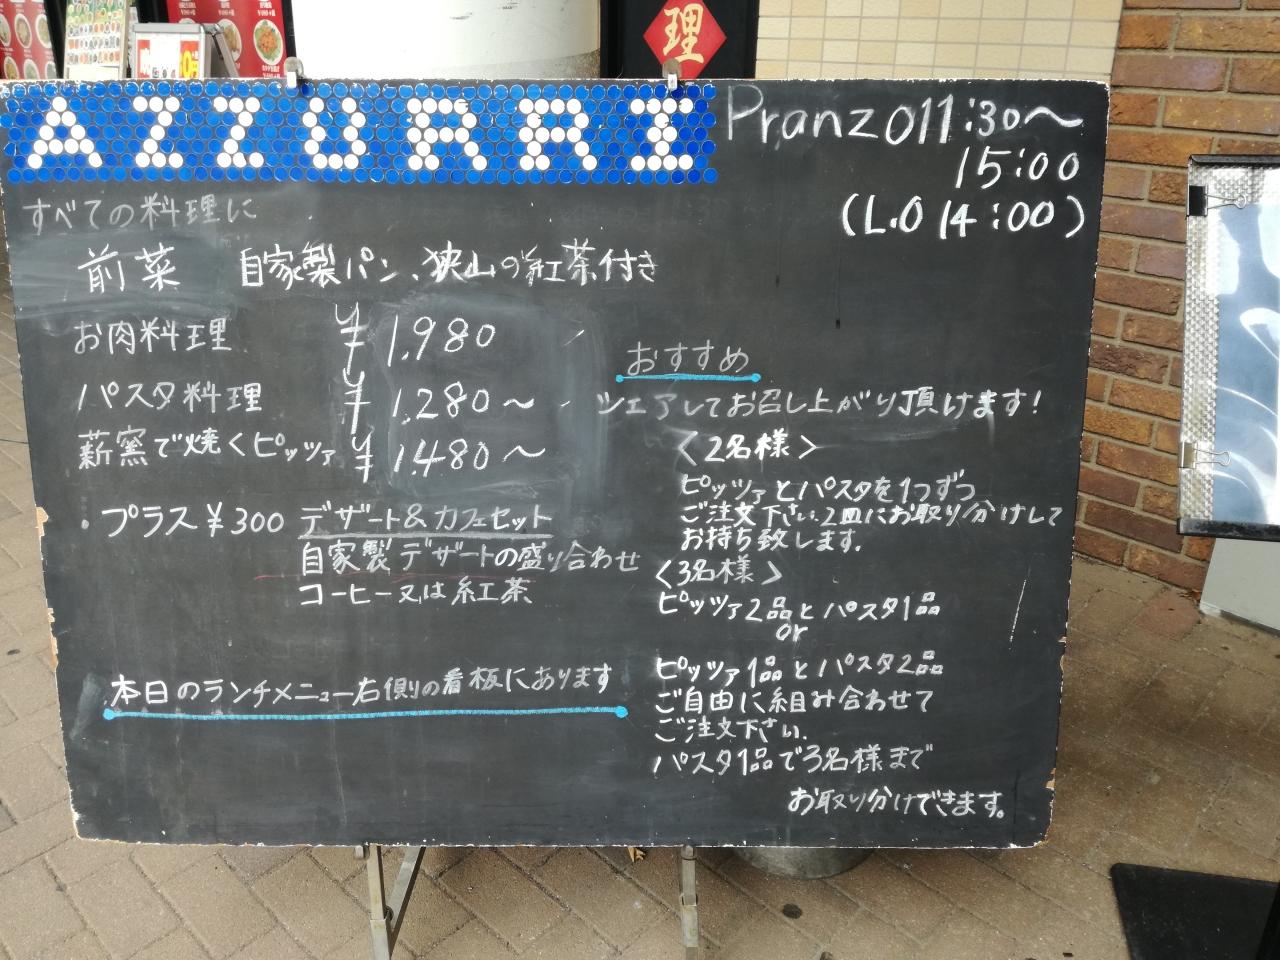 理
AZZURRI
Pranzo 11:30〜
15:00
(L.O 14:00)
すべての料理に
前菜 自家製パン、狭山の紅茶付き
お肉料理 ¥1,980
パスタ料理 ¥1,280〜
薪窯で焼くピッツァ ¥1,480〜
・プラス¥300 デザート&カフェセット
自家製デザートの盛り合わせ
コーヒー又は紅茶
本日のランチメニュー右側の看板にあります
おすすめ
シェアしてお召し上がり頂けます!
<2名様>
ピッツァとパスタを1つずつ
ご注文下さい.2皿にお取り分けして
お持ち致します.
<3名様>
ピッツァ2品とパスタ1品
or
ピッツァ1品とパスタ2品
ご自由に組み合わせて
ご注文下さい.
パスタ1品で3名様まで
お取り分けできます。